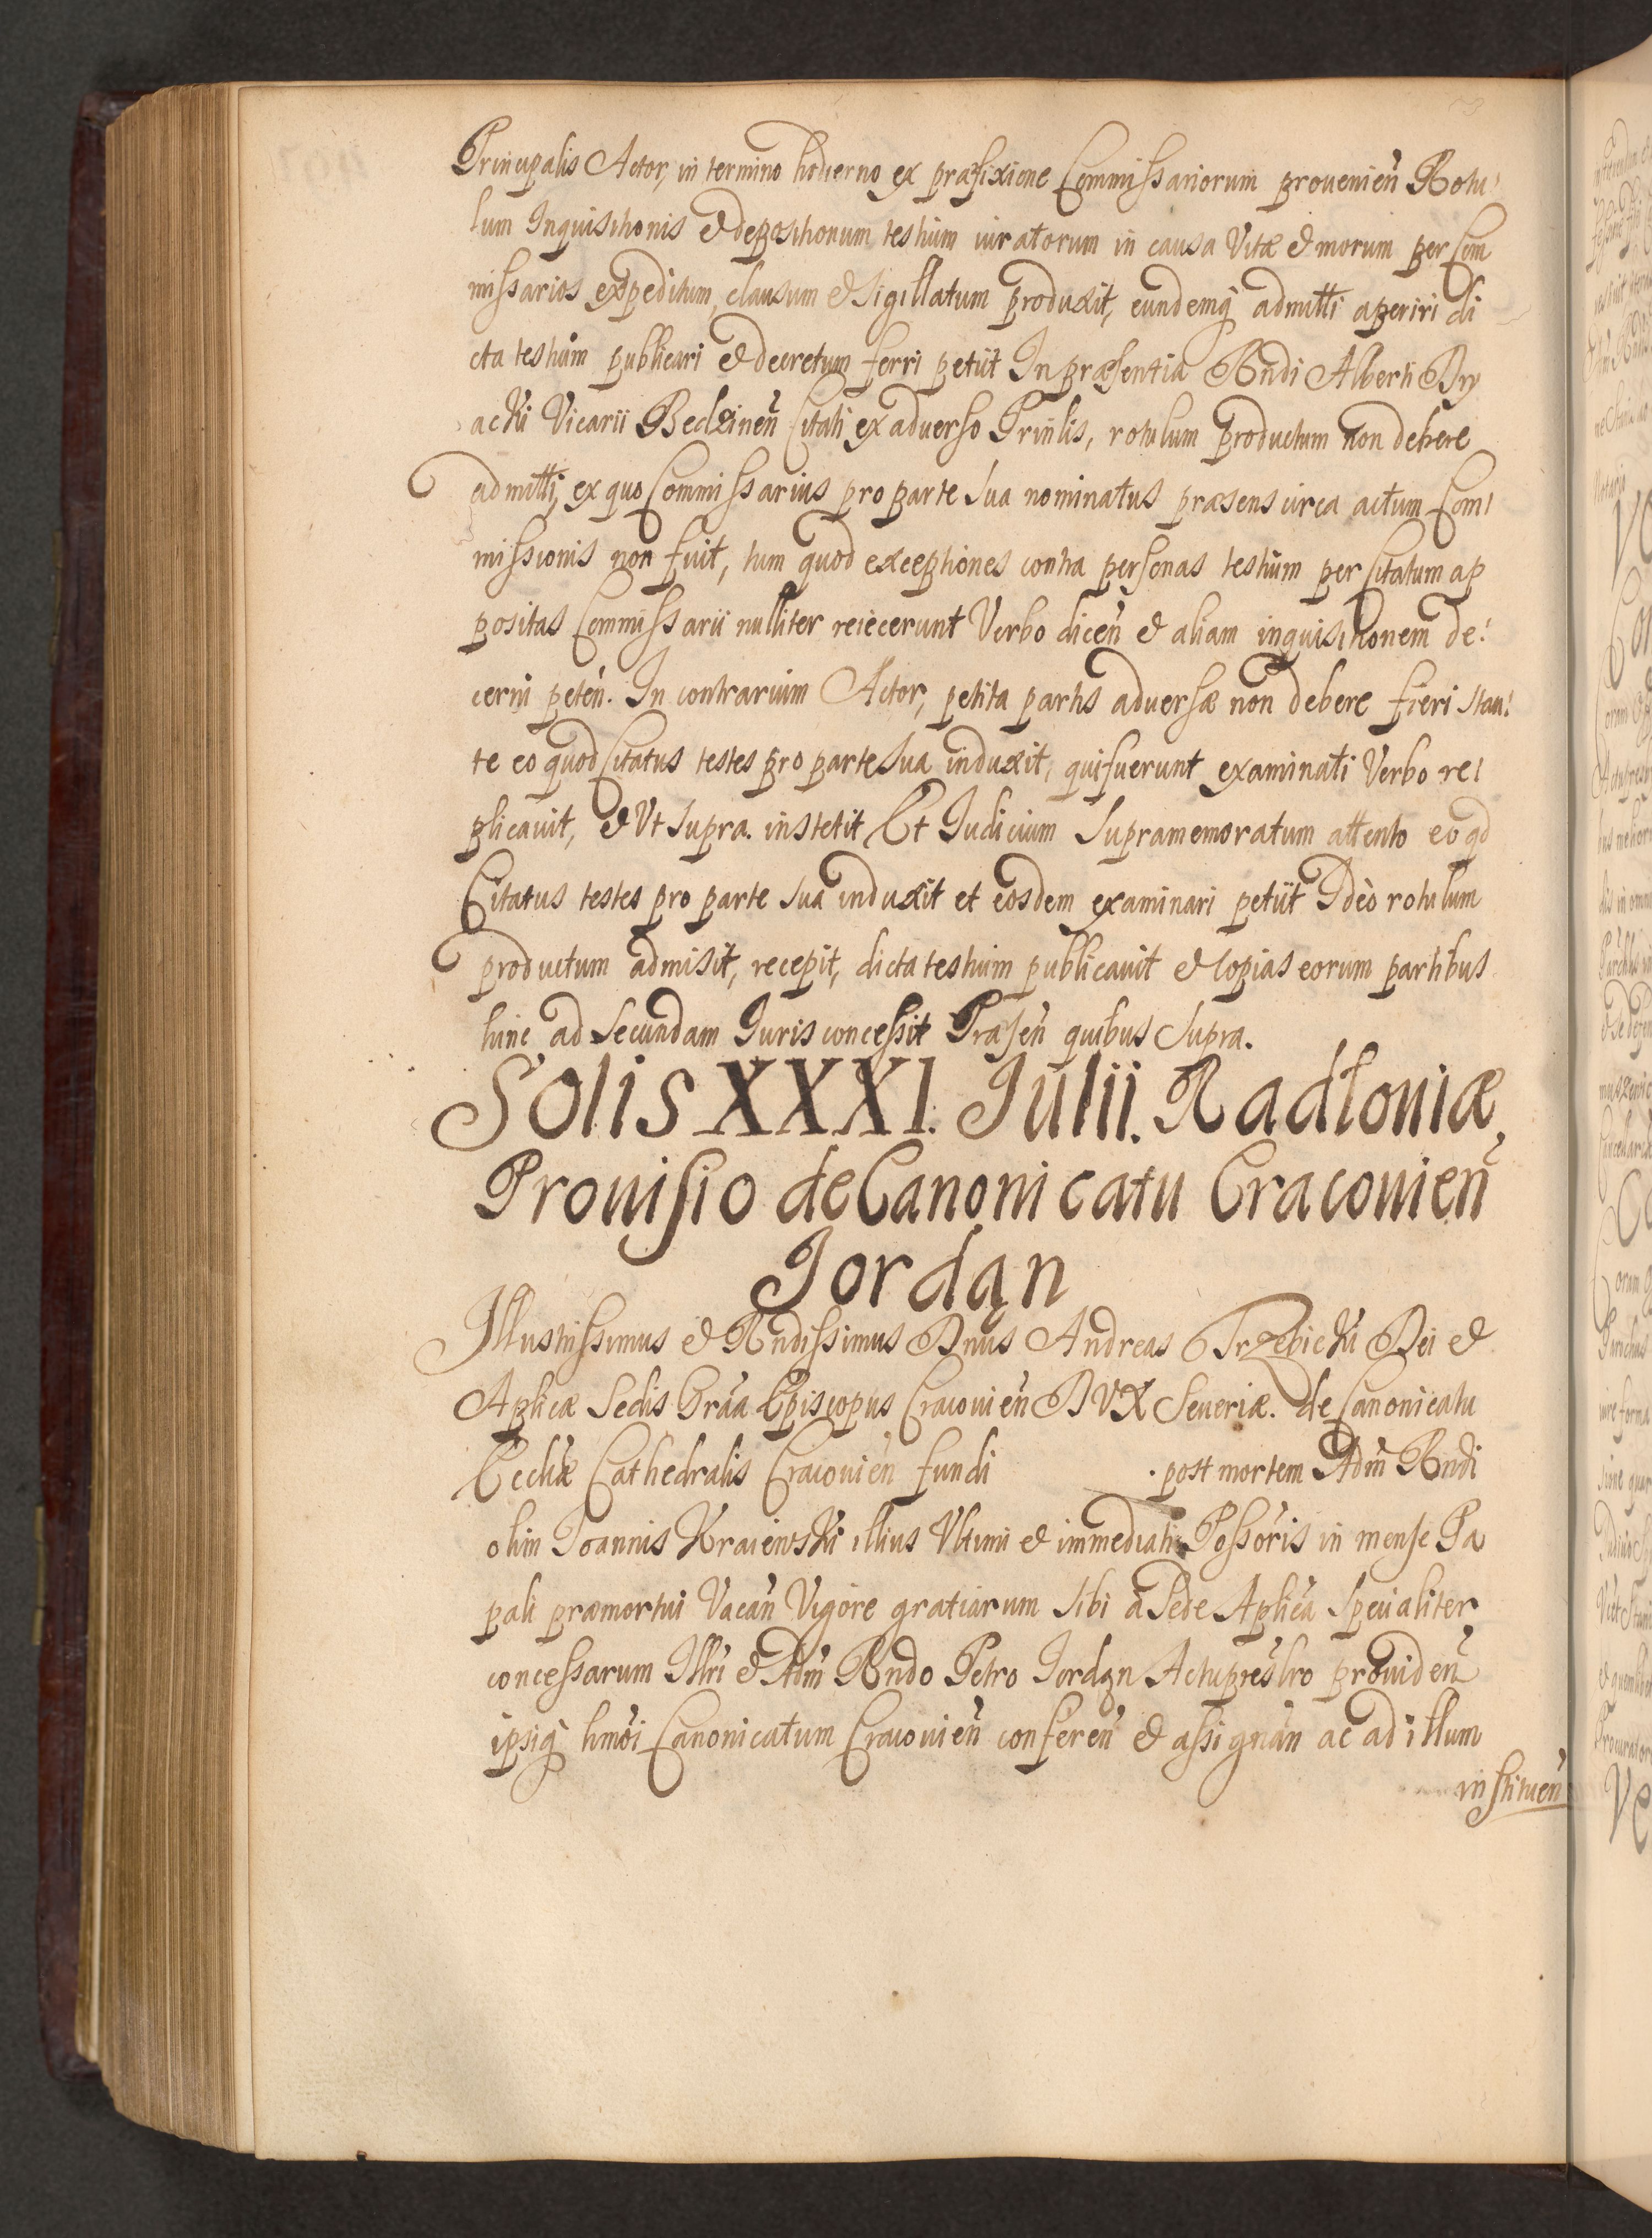 Principalis Actor, in termino hodierno ex præfixione Commissariorum prouenien̄ Rotu
lum Inquisitionis & depositionum testium iuratorum in causa Vitæ & morum per Com
missarios expeditum, clausum & sigillatum produxit, eundemq̃ admitti aperiri di
cta testium publicari & decretum ferri petiit In præsentia Rñdi Alberti Dry
acki Vicarii Bedzinen̄ Citati ex aduerso Prin̄lis, rotulum productum non debere
admitti, ex quo Commissarius pro parte sua nominatus præsens circa actum Com
missionis non fuit, tum quod exceptiones contra personas testium per Citatum ap
positas Commissarii nulliter reiecerunt Verbo dicen̄ & aliam inquisitionem de
cerni peten̄. In contrarium Actor, petita partis aduersæ non debere fieri stan
te eo quod Citatus testes pro parte sua induxit, qui fuerunt examinati Verbo re
plicauit, & Vt supra. institit Et Iudicium supramemoratum attento eo qd
Citatus testes pro parte sua induxit et eosdem examinari petiit Ideò rotulum
productum admisit, recepit, dicta testium publicauit & copias eorum partibus
hinc ad secundam Iuris concessit Præsen̄ quibus supra.
Solis XXXI. Iulii. Radłouiæ
Prouisio de Canonicatu Cracouien̄
Jordąn
Illustrissimus & Rñdissimus Dn̄us Andreas Trzebicki Dei &
Aplicæ Sedis Grãa Episcopus Cracouien̄ DVX Seueriæ. de Canonicatu
Ecclīæ Cathedralis Cracouien̄ fundi . post mortem Adm̄ Rñdi
olim Ioannis Kraiewski illius Vltimi & immediati Possōris in mense Pa
pali præmortui Vacan̄ Vigore gratiarum sibi à Sede Aplica specialiter
concessarum Illr̄i & Adm̄ Rñdo Petro Jordąn Actupresb̄ro prouiden̄
ipsiq̃ hm̄oi Canonicatum Cracouien̄ conferen̄ & assignan̄ ac ad illum
instituen̄